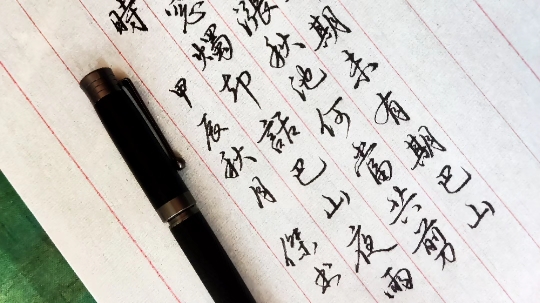 期未有期巴山
漲秋池何當共剪
窓燭却話巴山夜雨
時
甲辰秋月 傑书